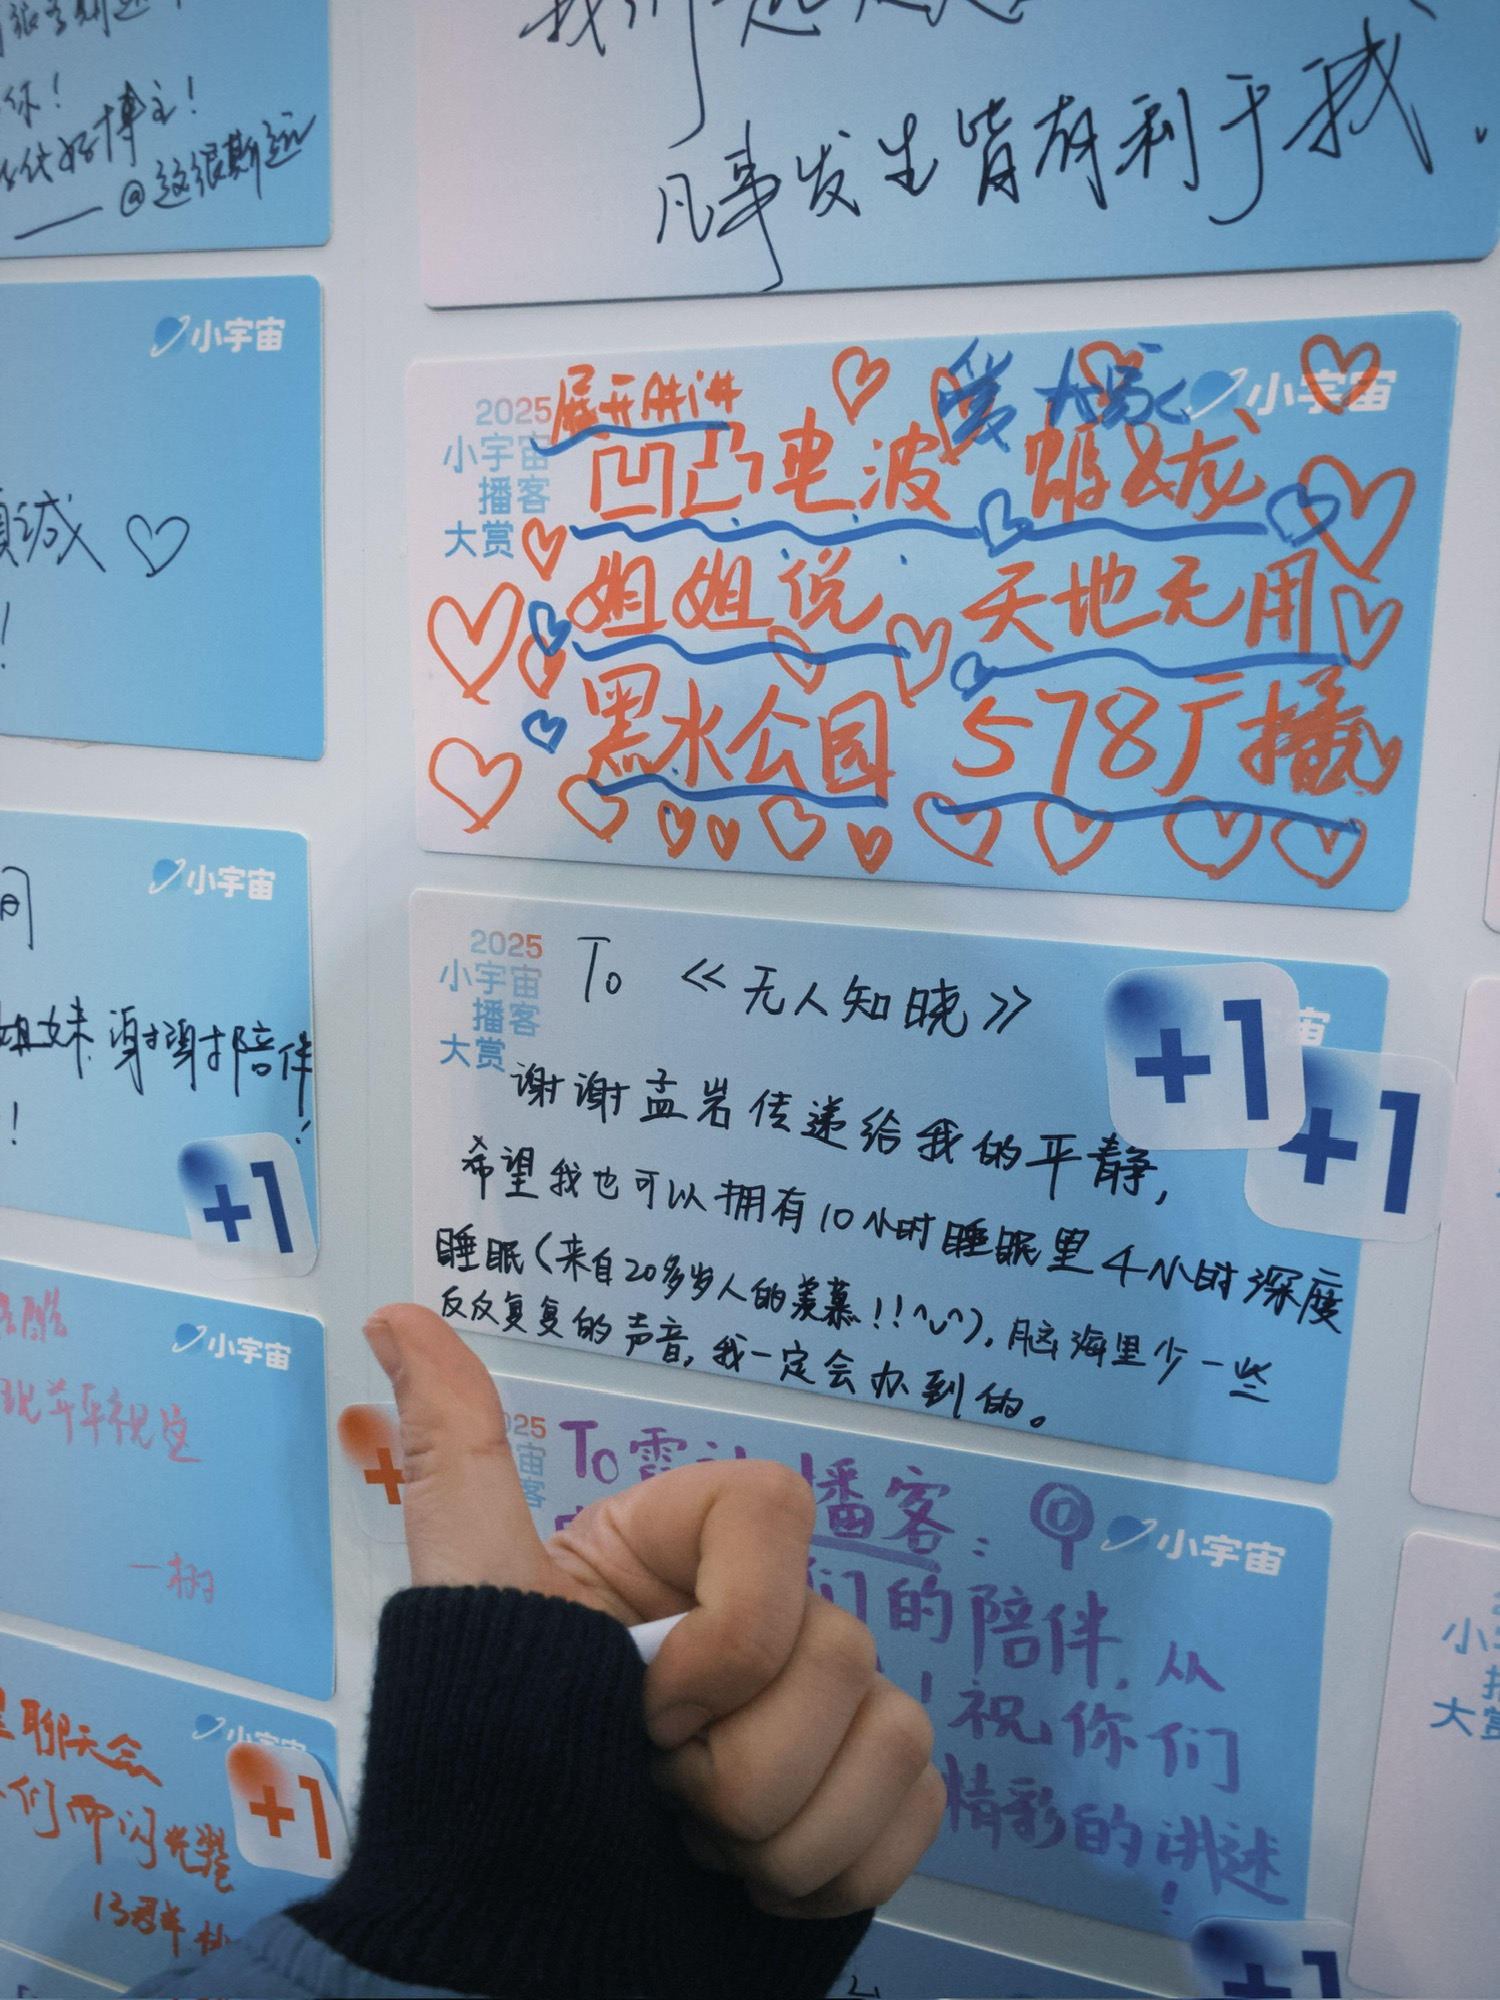 你！
好博主！
——@这很斯远
凡事发生皆有利于我.
小宇宙
2025
小宇宙
播客
大赏
展开讲讲
爱大家
小宇宙
凹凸电波
姐姐说 天地无用
黑水公园 578广播
小宇宙
谢谢陪伴
！
+1
2025
小宇宙
播客
大赏
To 《无人知晓》
+1
宙
+1
谢谢孟岩传递给我的平静，
希望我也可以拥有10小时睡眠里4小时深度
睡眠（来自20多岁人的羡慕！！^◡^），脑海里少一些
反反复复的声音，我一定会办到的。
小宇宙
一树
25
宙
客
To
播客：
小宇宙
们的陪伴，从
！祝你们
精彩的讲述
！
聊天会
们而闪光
+1
小宇
大赏
+1